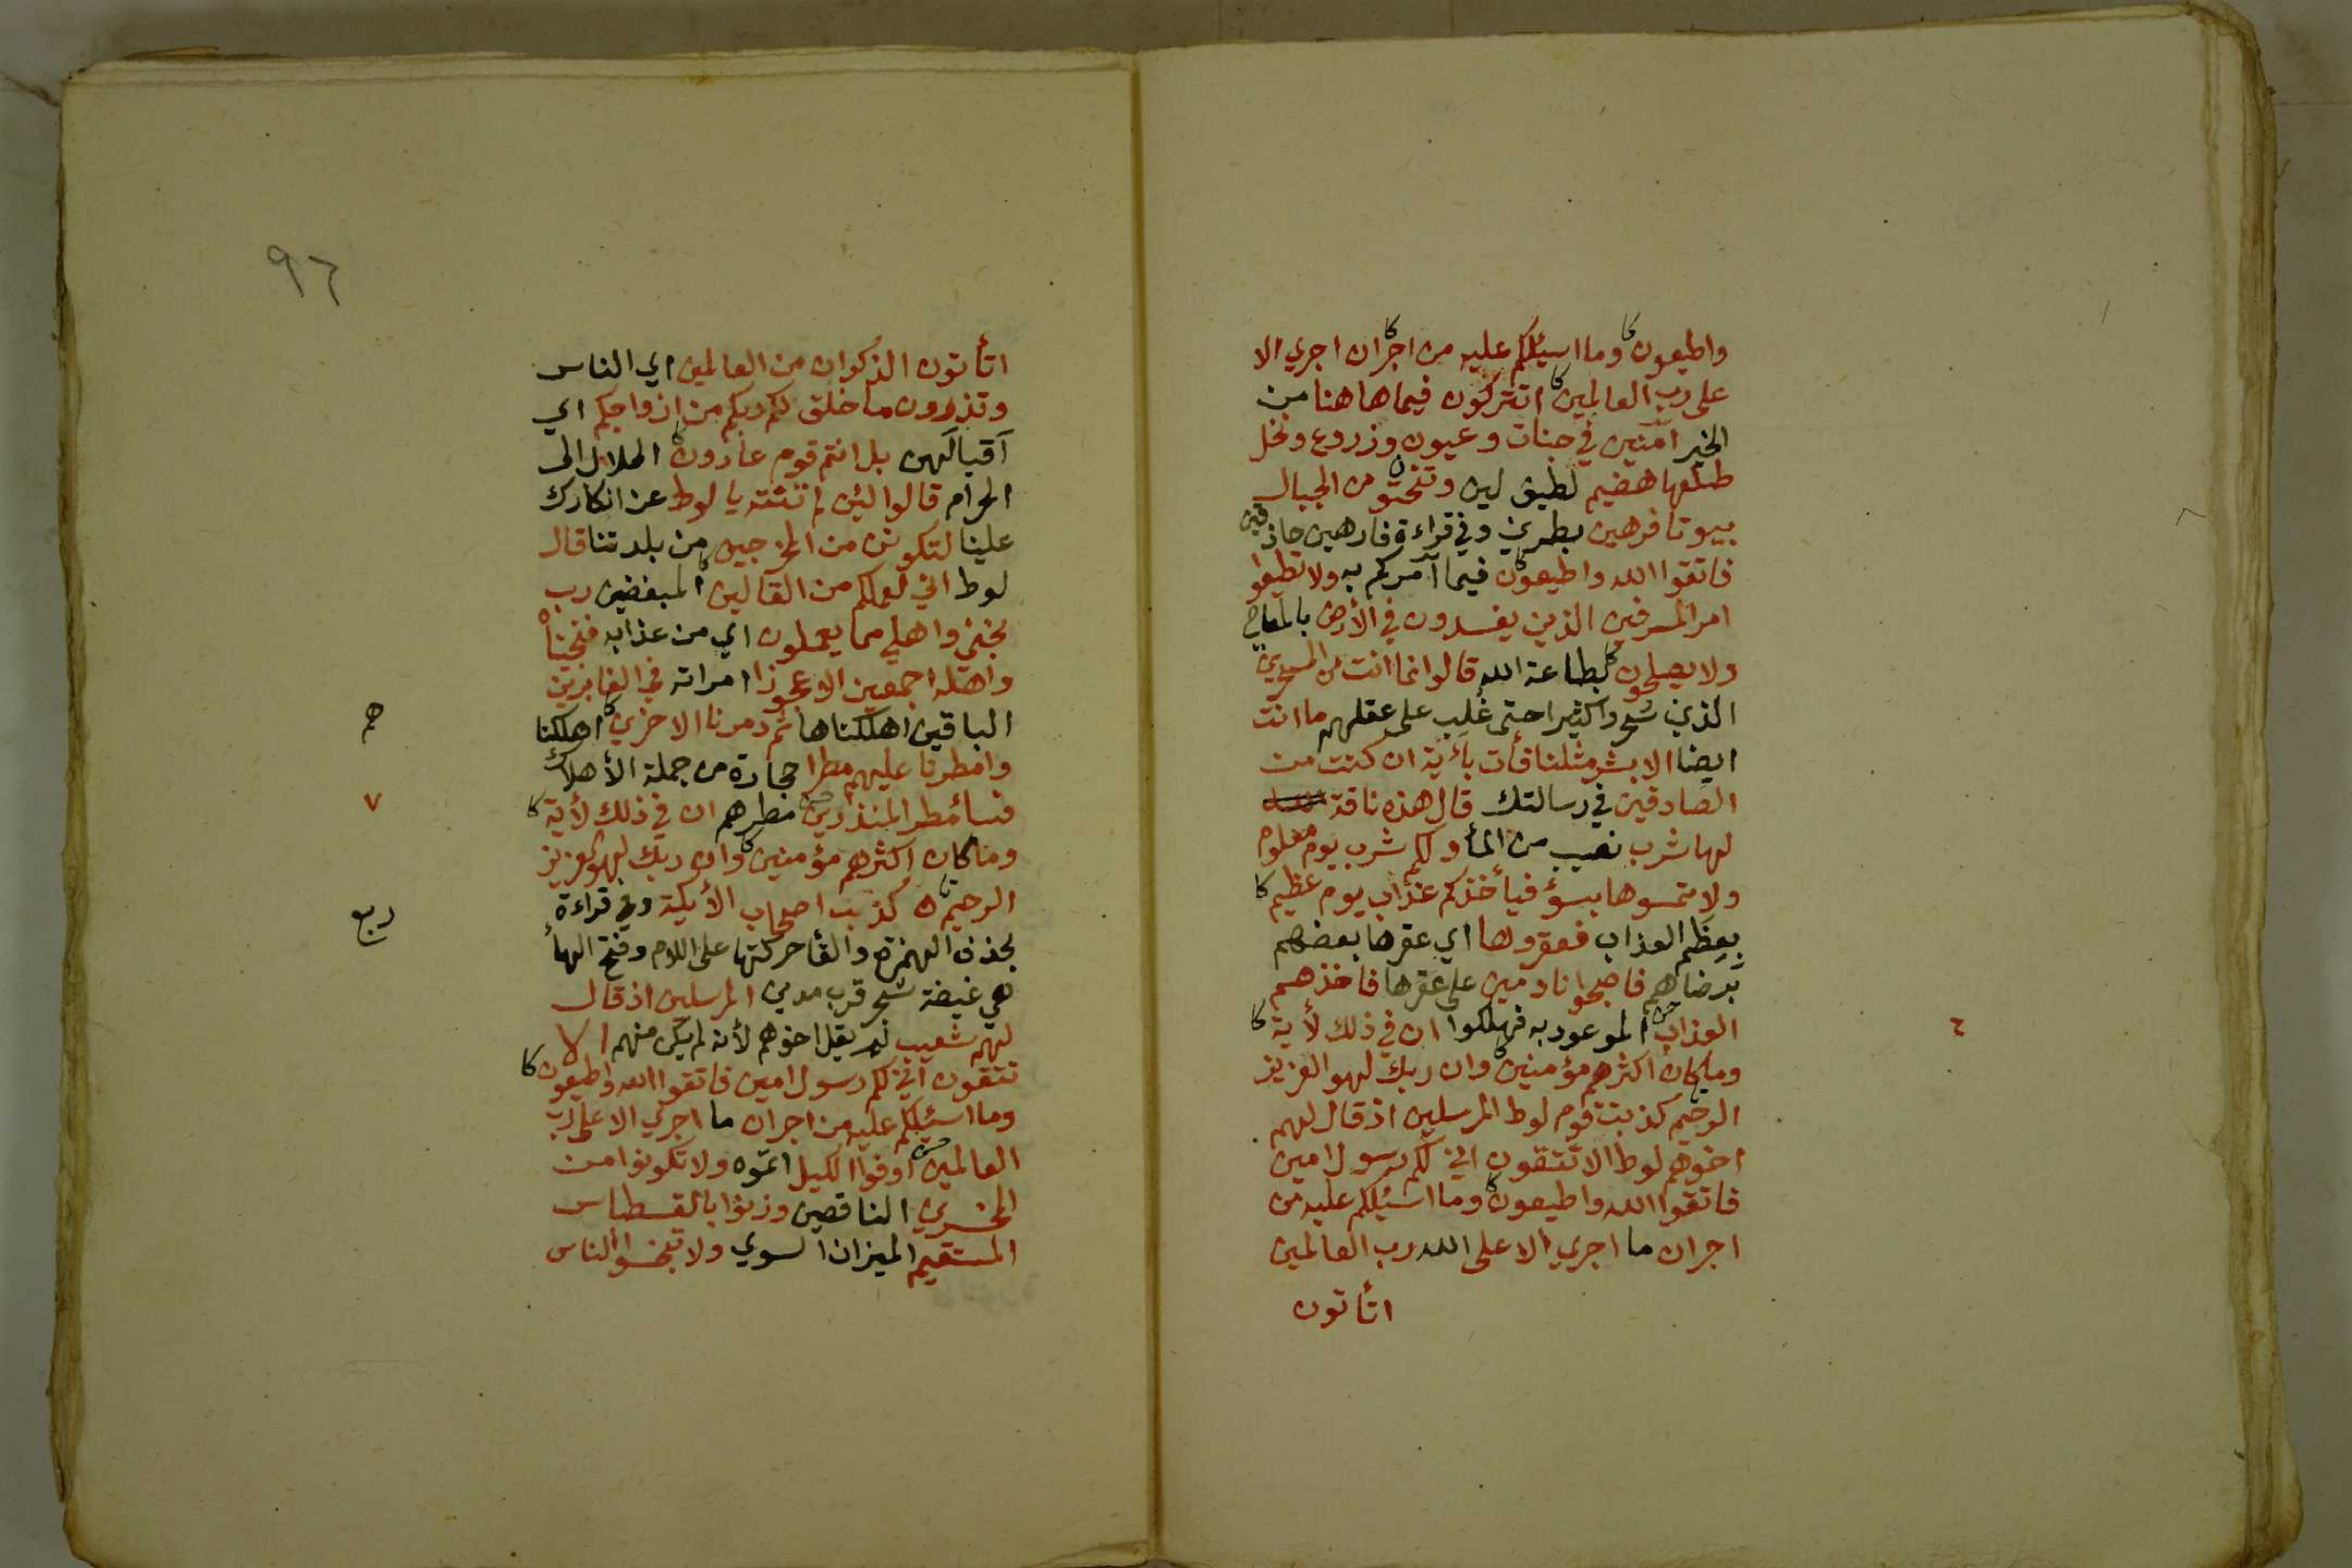 واطيعون كا وما اسئلكم عليه من اجر كا ان اجري الا
على رب العالمين كا اتتركون فيما هاهنا من
الخير آمنين في جنات وعيون وزروع ونخل
طلعها هضيم لطيف لين وتنحتون من الجبال
بيوتا فرهين بطرين وفي قراءة فارهين حاذقين
فاتقوا الله واطيعون كا فيما آمركم به ولا تطيعوا
امر المسرفين الذين يفسدون في الأرض بالمعاصي
ولا يصلحون كا بطاعة الله قالوا انما انت من المسحرين
الذين سحروا كثيرا حتى غلب على عقلهم ما انت
ايضا الا بشر مثلنا فأت بأية ان كنت من
الصادقين في رسالتك قال هذه ناقة
لها شرب نصيب من المأ ولكم شرب يوم معلوم
ولا تمسوها بسؤ فيأخذكم عذاب يوم عظيم كا
بعظم العذاب فعقروها اي عقرها بعضهم
برضاهم فاصبحوا نادمين على عقرها فاخذهم
العذاب الموعود به فهلكوا ان في ذلك لأية كا
وما كان اكثرهم مؤمنين كا وان ربك لهو العزيز
الرحيم كذبت قوم لوط المرسلين اذ قال لهم
اخوهم لوط الا تتقون اني لكم رسول امين
فاتقوا الله واطيعون كا وما اسئلكم عليه من
اجر ان ما اجري الا على الله رب العالمين
اتأتون
٦
٩٦
اتأتون الذكران من العالمين اي الناس
وتذرون ما خلق لكم ربكم من ازواجكم اي
آقبالهن بل انتم قوم عادون كا الحلال الى
الحرام قالوا لئن لم تنته يا لوط عن انكارك
علينا لتكونن من المخرجين من بلدتنا قال
لوط اني لعملكم من القالين كا المبغضين رب
نجني واهلي مما يعملون اي من عذابه فنجيناه
واهله اجمعين الا عجوزا امراته في الغابرين
الباقين اهلكناها ثم دمرنا الاخرين كا اهلكنا
وامطرنا عليهم مطرا حجارة من جملة الأهلاك
فسأ مطر المنذرين مطرهم ان في ذلك لأية كا
وما كان اكثرهم مؤمنين كا وان ربك لهو العزيز
الرحيم كذبت اصحاب الأيكة وفي قراءة
بحذف الهمزة والقأ حركتها على اللام وفتح الهأ
هي غيضة شجر قرب مدين المرسلين اذ قال
لهم شعيب لم يقل اخوهم لأنه لم يكن منهم الا
تتقون اني لكم رسول امين فاتقوا الله واطيعون كا
وما اسئلكم عليه من اجر ان ما اجري الا على رب
العالمين اوفوا الكيل اتموه ولا تكونوا من
المخسرين الناقصين وزنوا بالقسطاس
المستقيم الميزان السوي ولا تبخسوا الناس
هم
٧
ربع